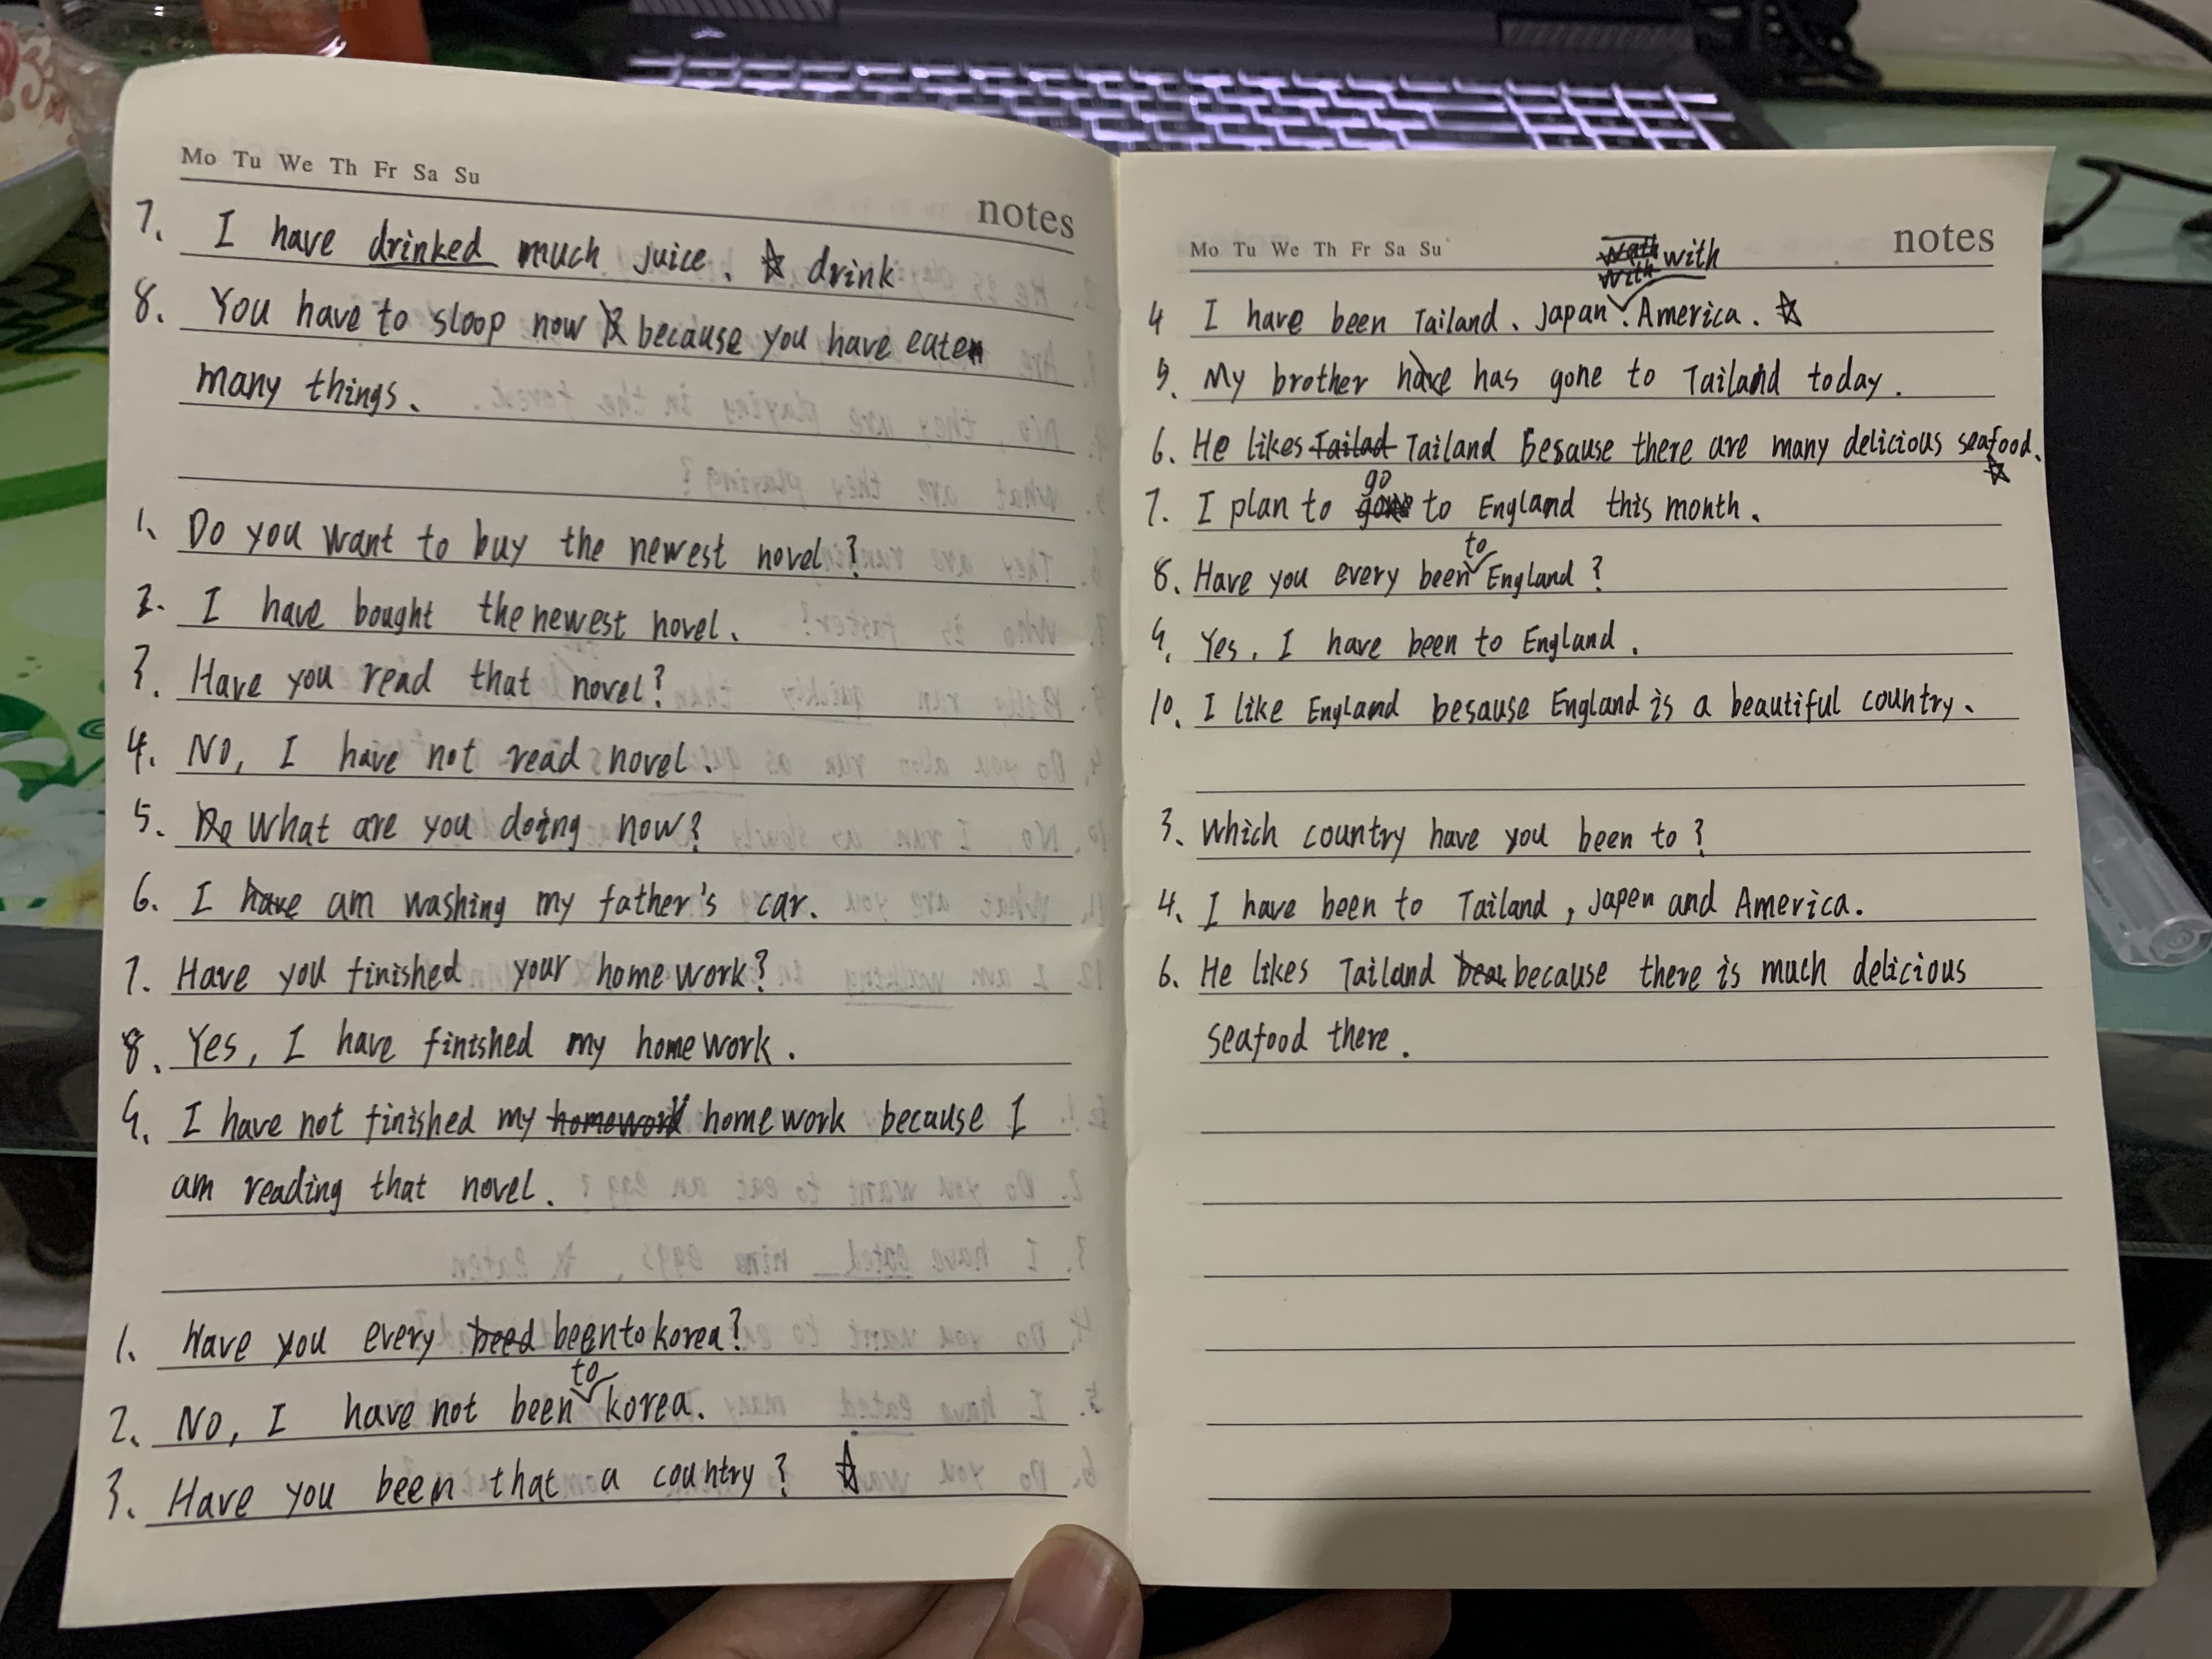 Mo Tu We Th Fr Sa Su
notes
7. I have drinked much juice. ☆ drink
8. You have to sloop now because you have eaten
many things.
1. Do you want to buy the newest novel?
2. I have bought the newest novel.
3. Have you read that novel?
4. No, I have not read novel.
5. What are you doing now?
6. I have am washing my father's car.
7. Have you finished your home work?
8. Yes, I have finished my home work.
9. I have not finished my homework home work because I
am reading that novel.
1. Have you every beed been to korea?
to
2. No, I have not been korea.
3. Have you been that a country? ☆
Mo Tu We Th Fr Sa Su
notes
with with
4 I have been Tailand、Japan、America. ☆
5. My brother have has gone to Tailand today.
6. He likes Tailad Tailand besause there are many delicious seafood.
☆
go
7. I plan to gone to England this month.
to
8. Have you every been England?
9. Yes, I have been to England.
10. I like England besause England is a beautiful country.
3. Which country have you been to?
4. I have been to Tailand, Japen and America.
6. He likes Tailand because there is much delicious
seafood there.